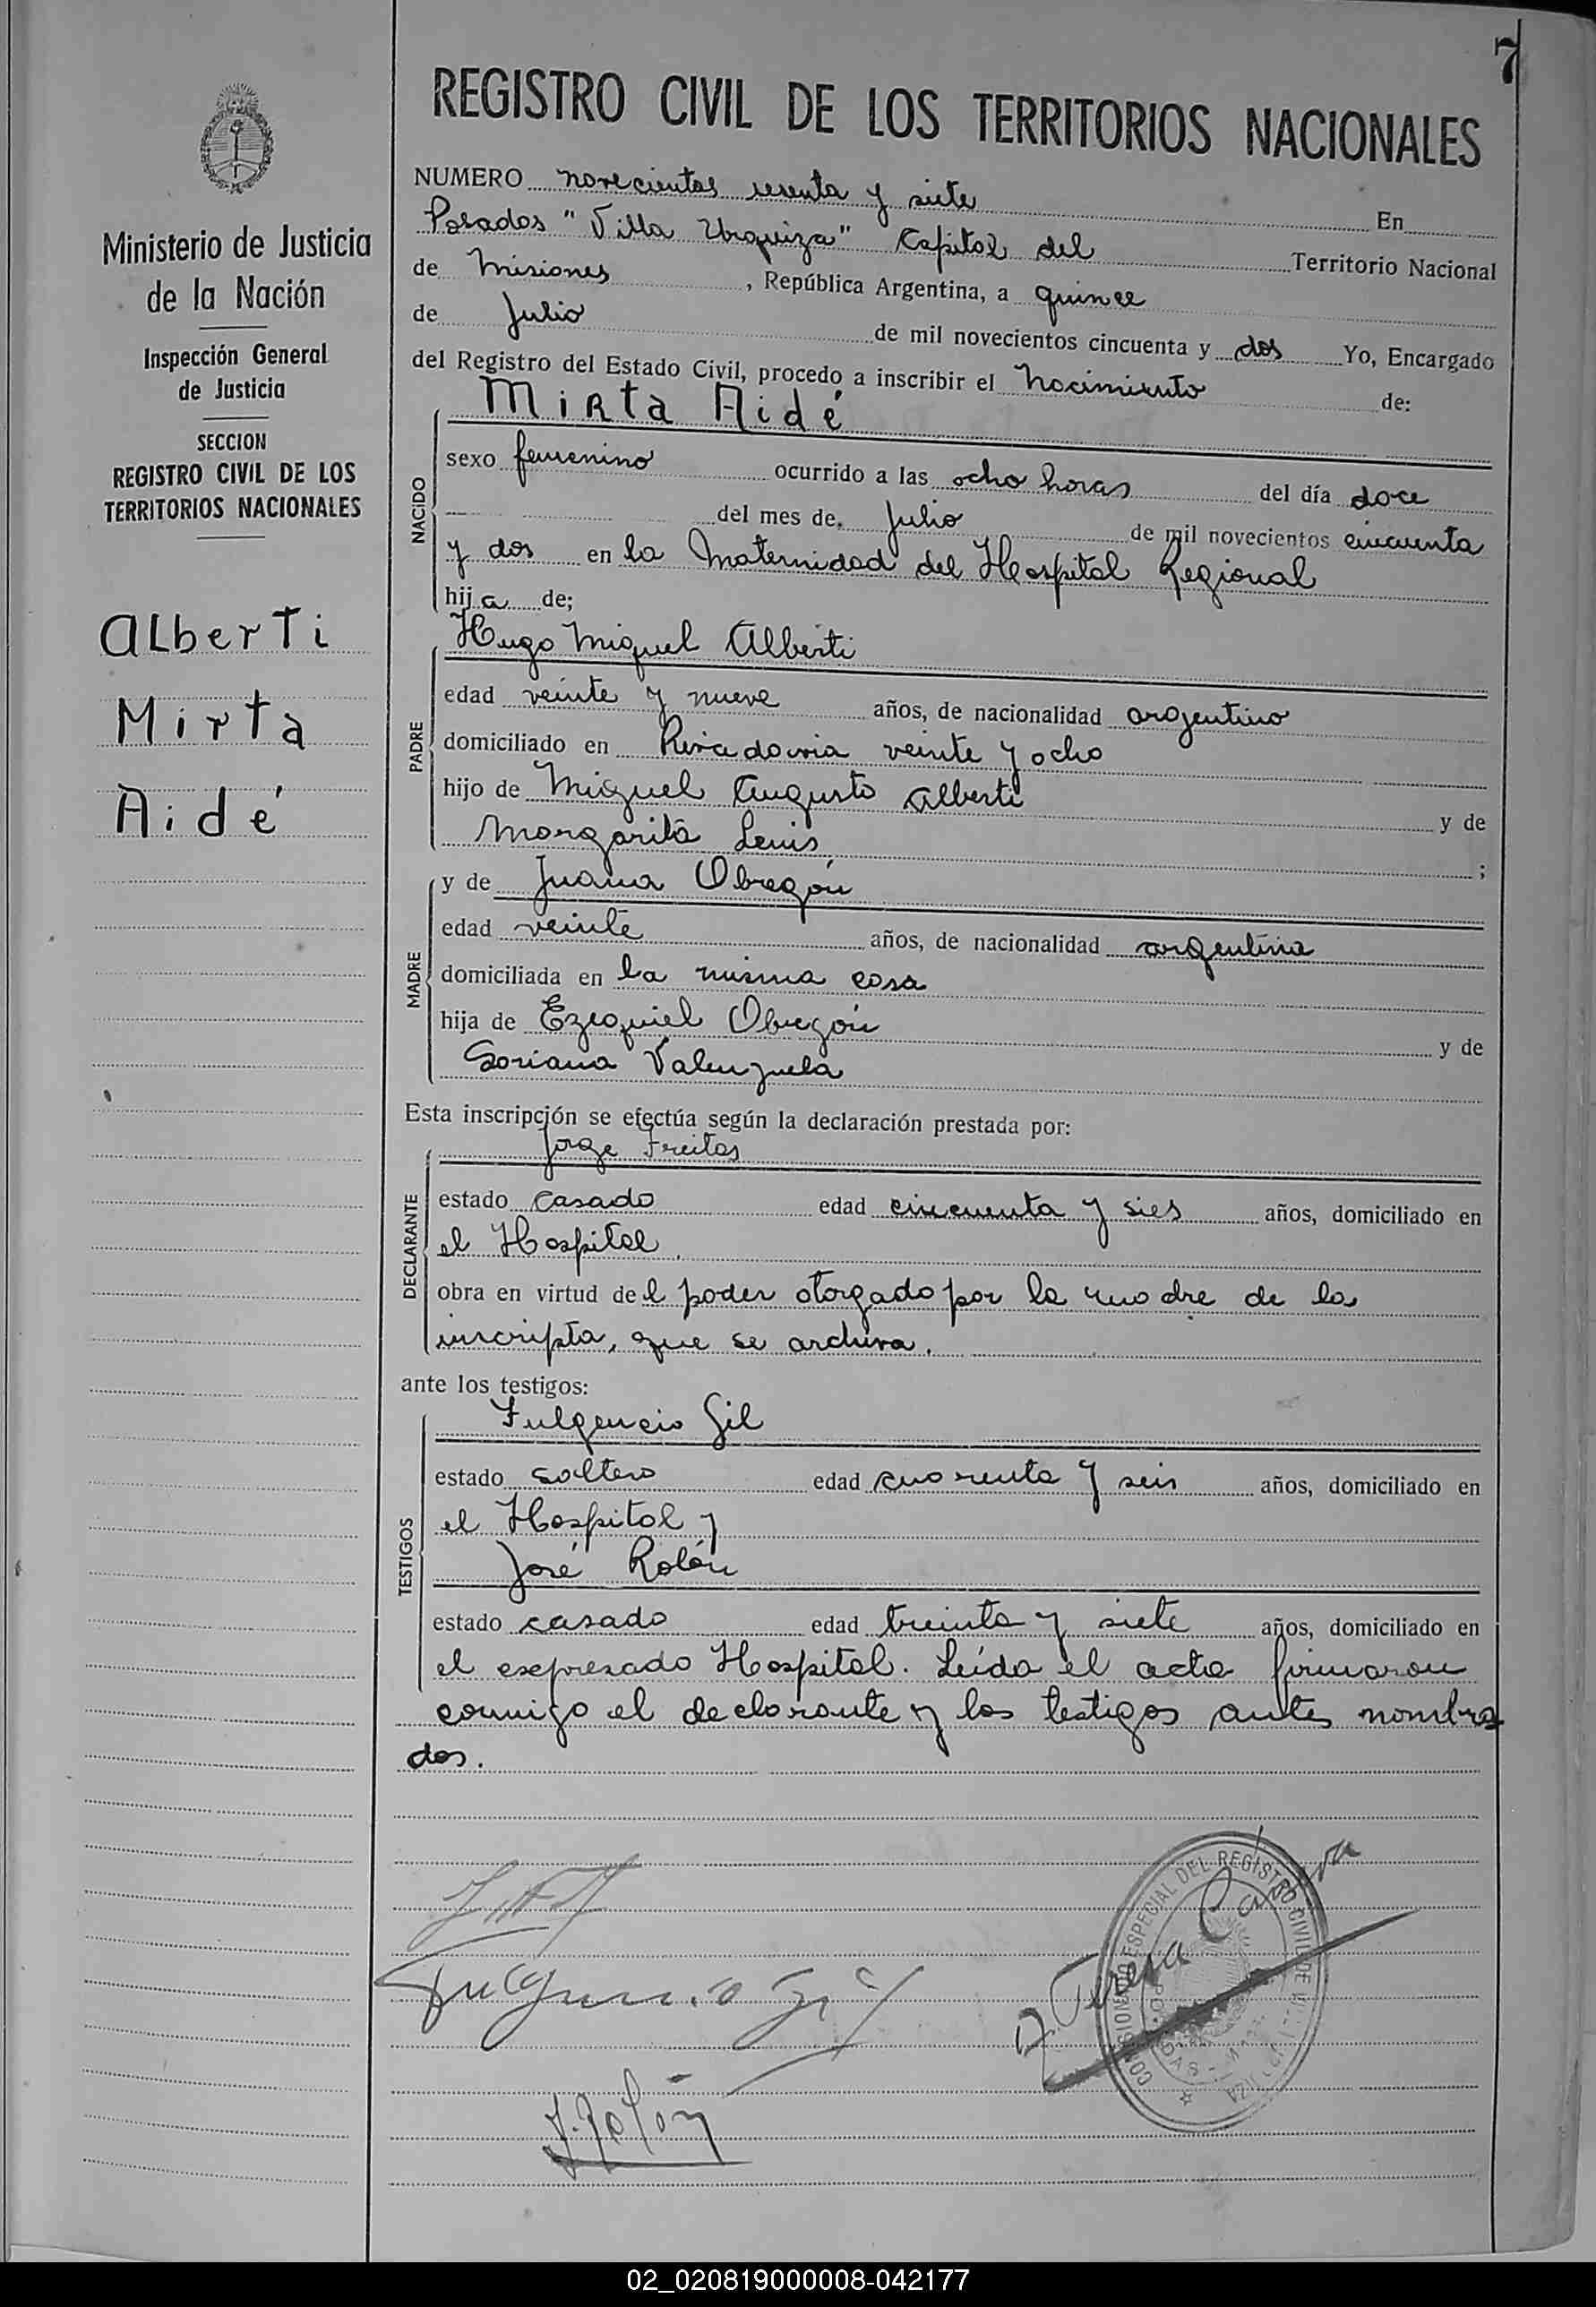 7
REGISTRO CIVIL DE LOS TERRITORIOS NACIONALES
Ministerio de Justicia
de la Nación
Inspección General
de Justicia
SECCION
REGISTRO CIVIL DE LOS
TERRITORIOS NACIONALES
Alberti
Mirta
Aidé
NUMERO novecientos sesenta y siete En
Posadas "Villa Urquiza" Capital del Territorio Nacional
de Misiones, República Argentina, a quince
de Julio de mil novecientos cincuenta y dos Yo, Encargado
del Registro del Estado Civil, procedo a inscribir el Nacimiento de:
NACIDO
Mirta Aidé
sexo femenino ocurrido a las ocho horas del día doce
del mes de Julio de mil novecientos cincuenta
y dos en la Maternidad del Hospital Regional
hija de;
PADRE
Hugo Miguel Alberti
edad veinte y nueve años, de nacionalidad argentino
domiciliado en Rivadavia veinte y ocho
hijo de Miguel Augusto Alberti y de
Margarita Lenis ;
MADRE
y de Juana Obregón
edad veinte años, de nacionalidad argentina
domiciliada en la misma casa
hija de Ezequiel Obregón y de
Soriana Valenzuela
Esta inscripción se efectúa según la declaración prestada por:
DECLARANTE
Jorge Freitas
estado casado edad cincuenta y sies años, domiciliado en
el Hospital,
obra en virtud del poder otorgado por la madre de la
inscripta, que se archiva.
ante los testigos:
TESTIGOS
Fulgencio Gil
estado soltero edad cuarenta y seis años, domiciliado en
el Hospital y
José Rolón
estado casado edad treinta y siete años, domiciliado en
el esepresado Hospital. Leída el acta firmaron
conmigo el declarante y los testigos antes nombra
dos.
Fulgencio Gil
J. Rolón
COMISIONADO ESPECIAL DEL REGISTRO CIVIL DE
Teresa
02_020819000008-042177